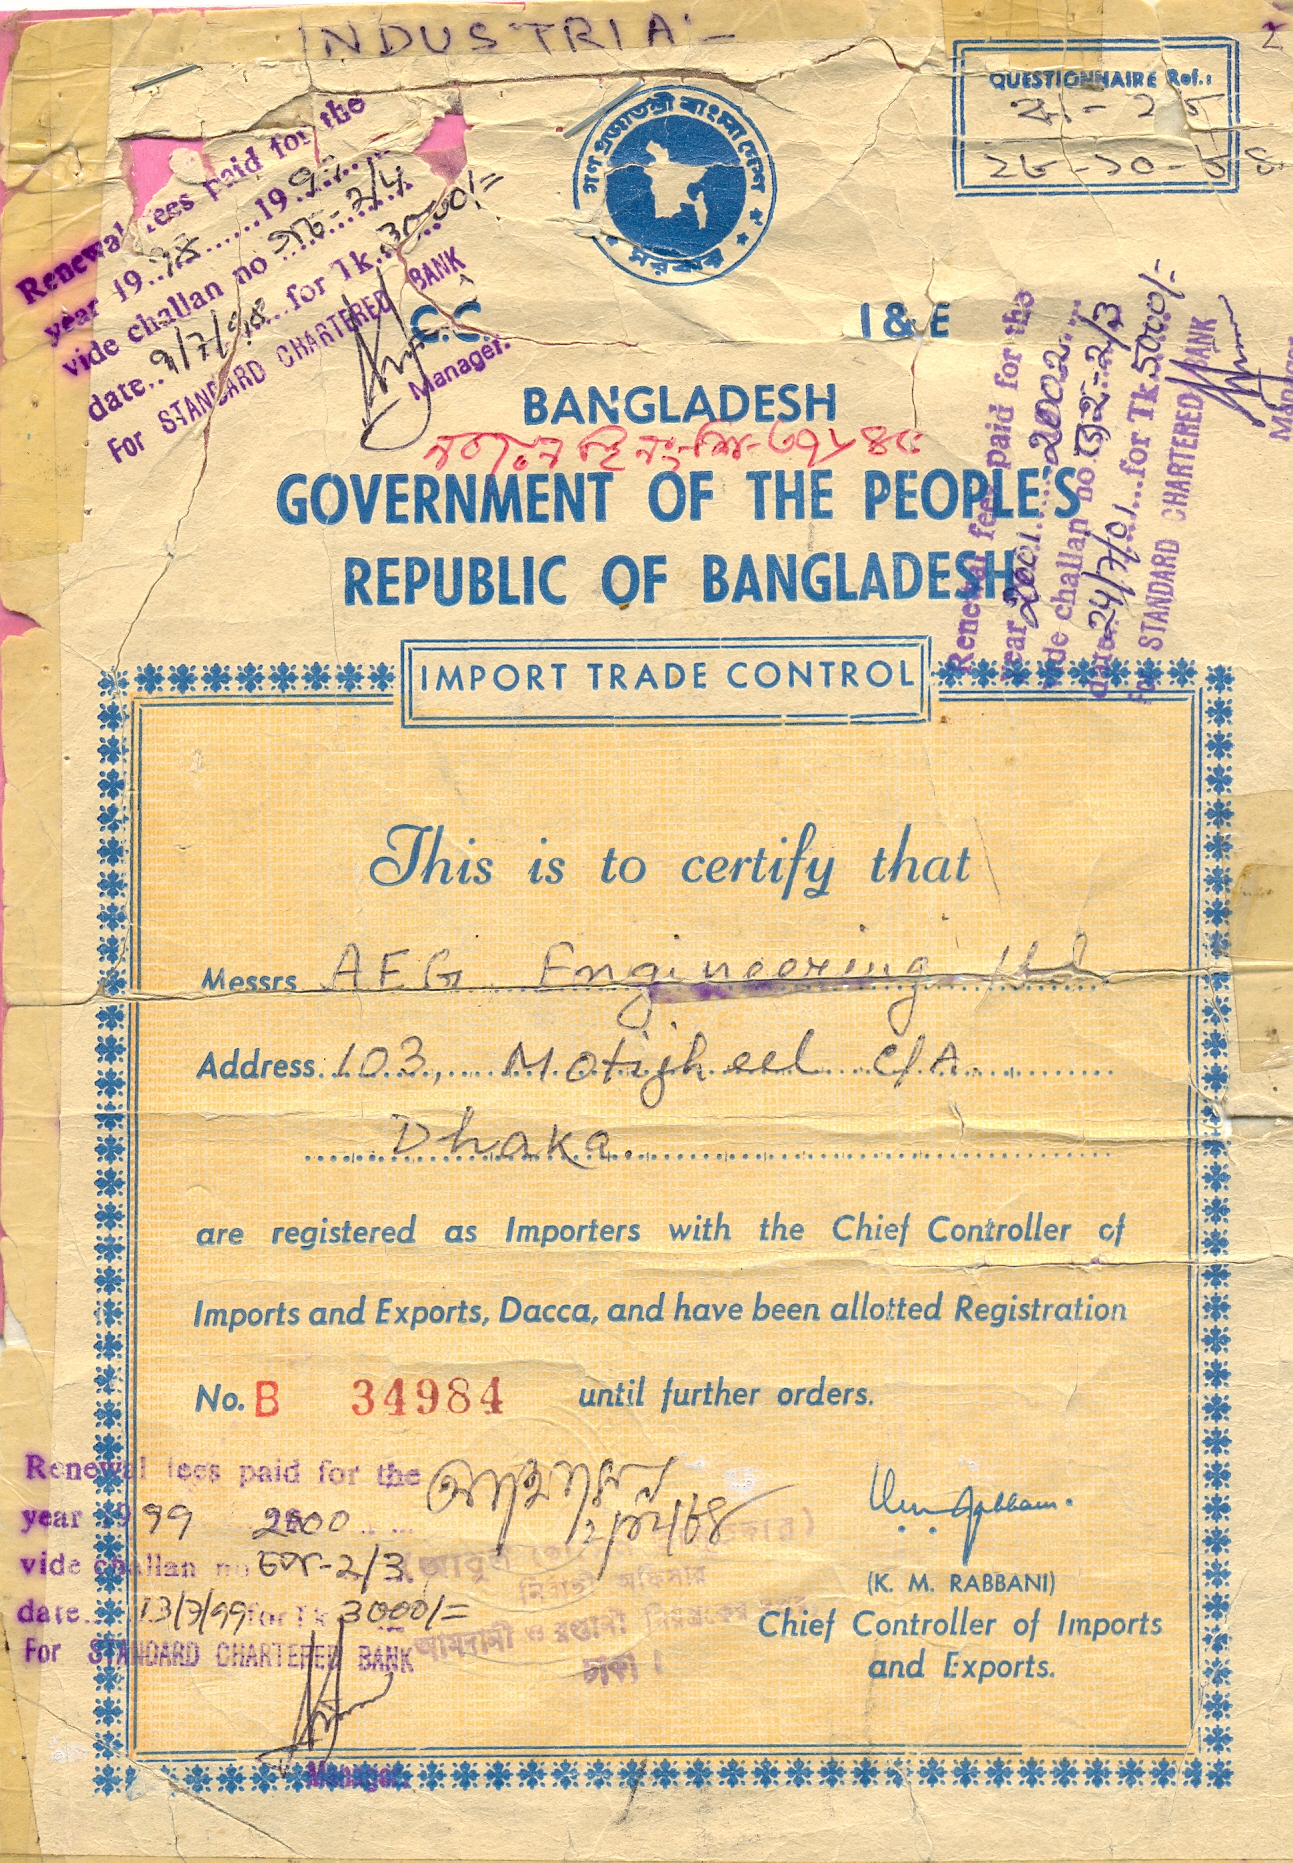 INDUSTRIAL
QUESTIONNAIRE Ref.:
গণ প্রজাতন্ত্রী বাংলাদেশ
সরকার
Renewal fees paid for the
year 1998......1997......
vide challan no
date..9/7/98......for Tk.3000/=
For STANDARD CHARTERED BANK
Manager.
C.C.
I & E
BANGLADESH
GOVERNMENT OF THE PEOPLE'S
REPUBLIC OF BANGLADESH
Renewal fees paid for the
year 2001......2002......
vide challan no
date 24/7/01......for Tk.5000/-
For STANDARD CHARTERED BANK
Manager
IMPORT TRADE CONTROL
This is to certify that
Messrs AEG Engineering Ltd.
Address. 103, Motijheel C/A.
Dhaka.
are registered as Importers with the Chief Controller of
Imports and Exports, Dacca, and have been allotted Registration
No. B 34984 until further orders.
Renewal fees paid for the
year 1999 2000
vide challan no
date... 13/7/99 for Tk 3000/=
For STANDARD CHARTERED BANK
Manager.
নির্বাহী অফিসার
আমদানী ও রপ্তানী নিয়ন্ত্রকের দপ্তর,
ঢাকা।
(K. M. RABBANI)
Chief Controller of Imports
and Exports.